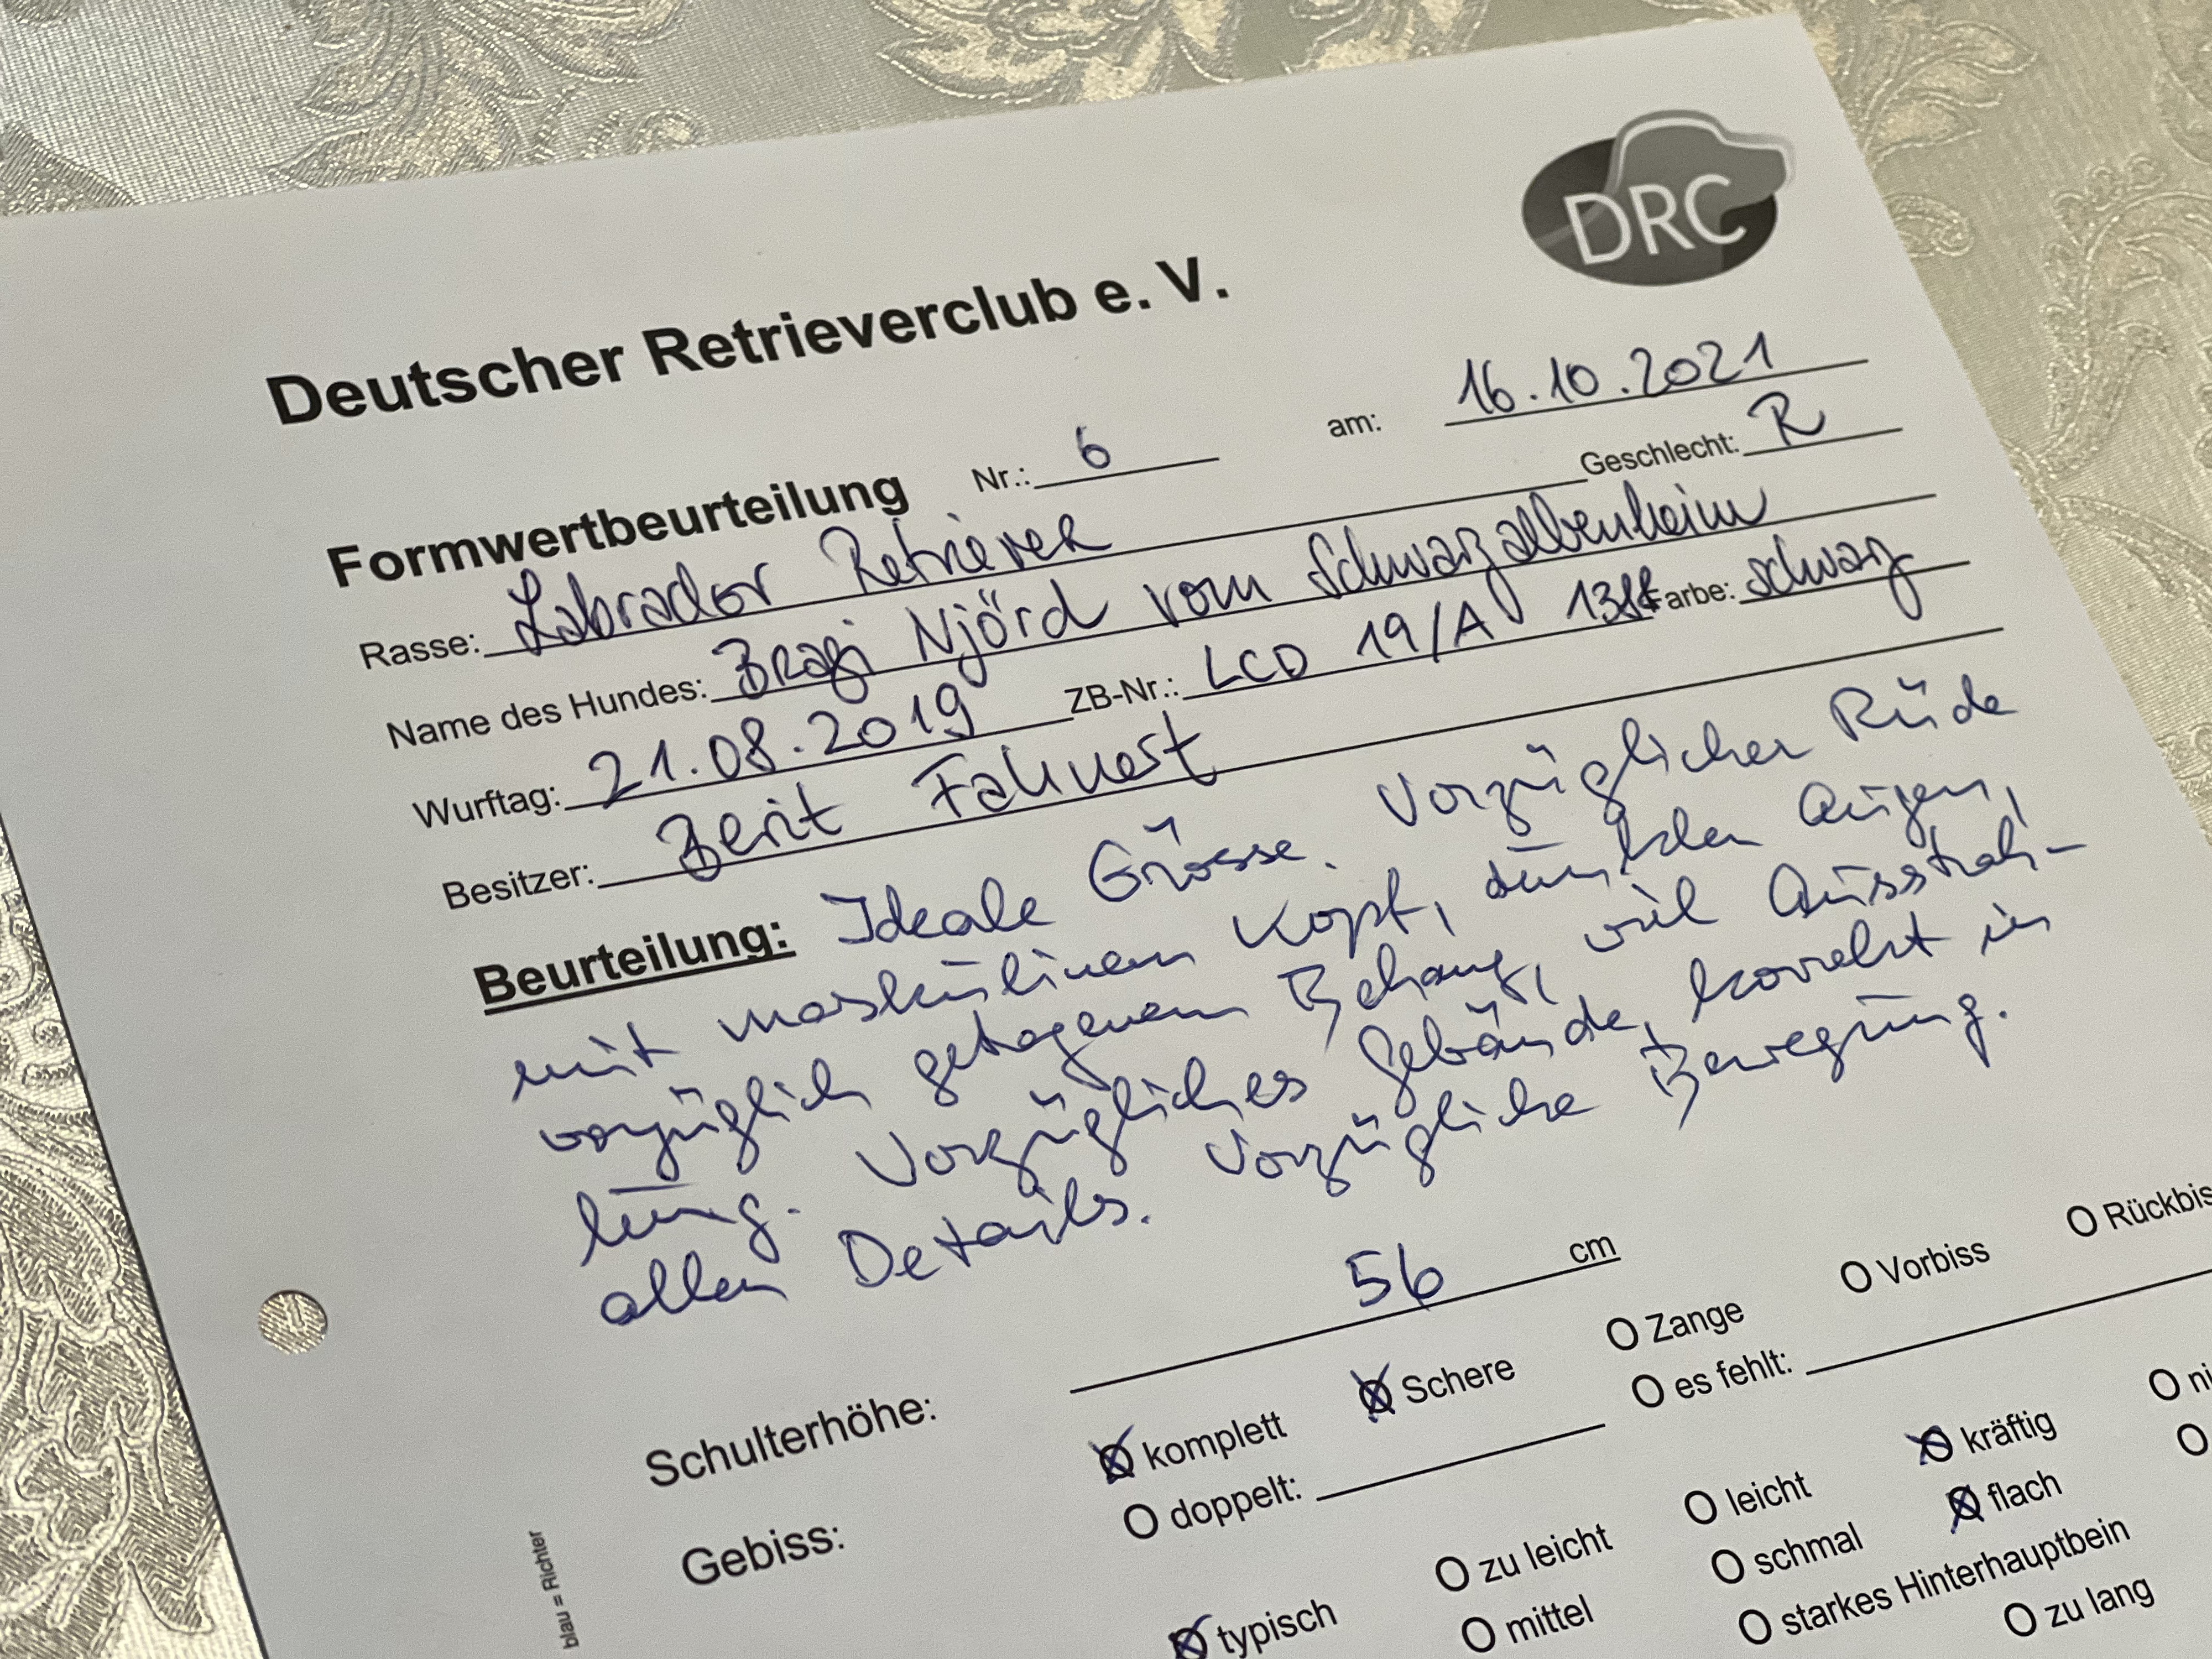 DRC
Deutscher Retrieverclub e. V.
Formwertbeurteilung Nr.: 6 am: 16.10.2021
Rasse: Labrador Retriever Geschlecht: R
Name des Hundes: Bragi Njörd vom Schwarzalbenheim
Wurftag: 21.08.2019 ZB-Nr.: LCD 19/A Farbe: schwarz
Besitzer: Berit Fahnert
Beurteilung: Ideale Grösse. Vorzüglicher Rüde
mit maskulinem Kopf, dunklen Augen,
vorzüglich getragenem Behang, viel Ausstrah-
lung. Vorzügliches Gebäude, korrekt in
allen Details. Vorzügliche Bewegung.
Schulterhöhe: 56 cm
Gebiss: komplett Schere Zange Vorbiss
doppelt: es fehlt:
typisch zu leicht leicht kräftig
mittel schmal flach
starkes Hinterhauptbein
zu lang
blau = Richter